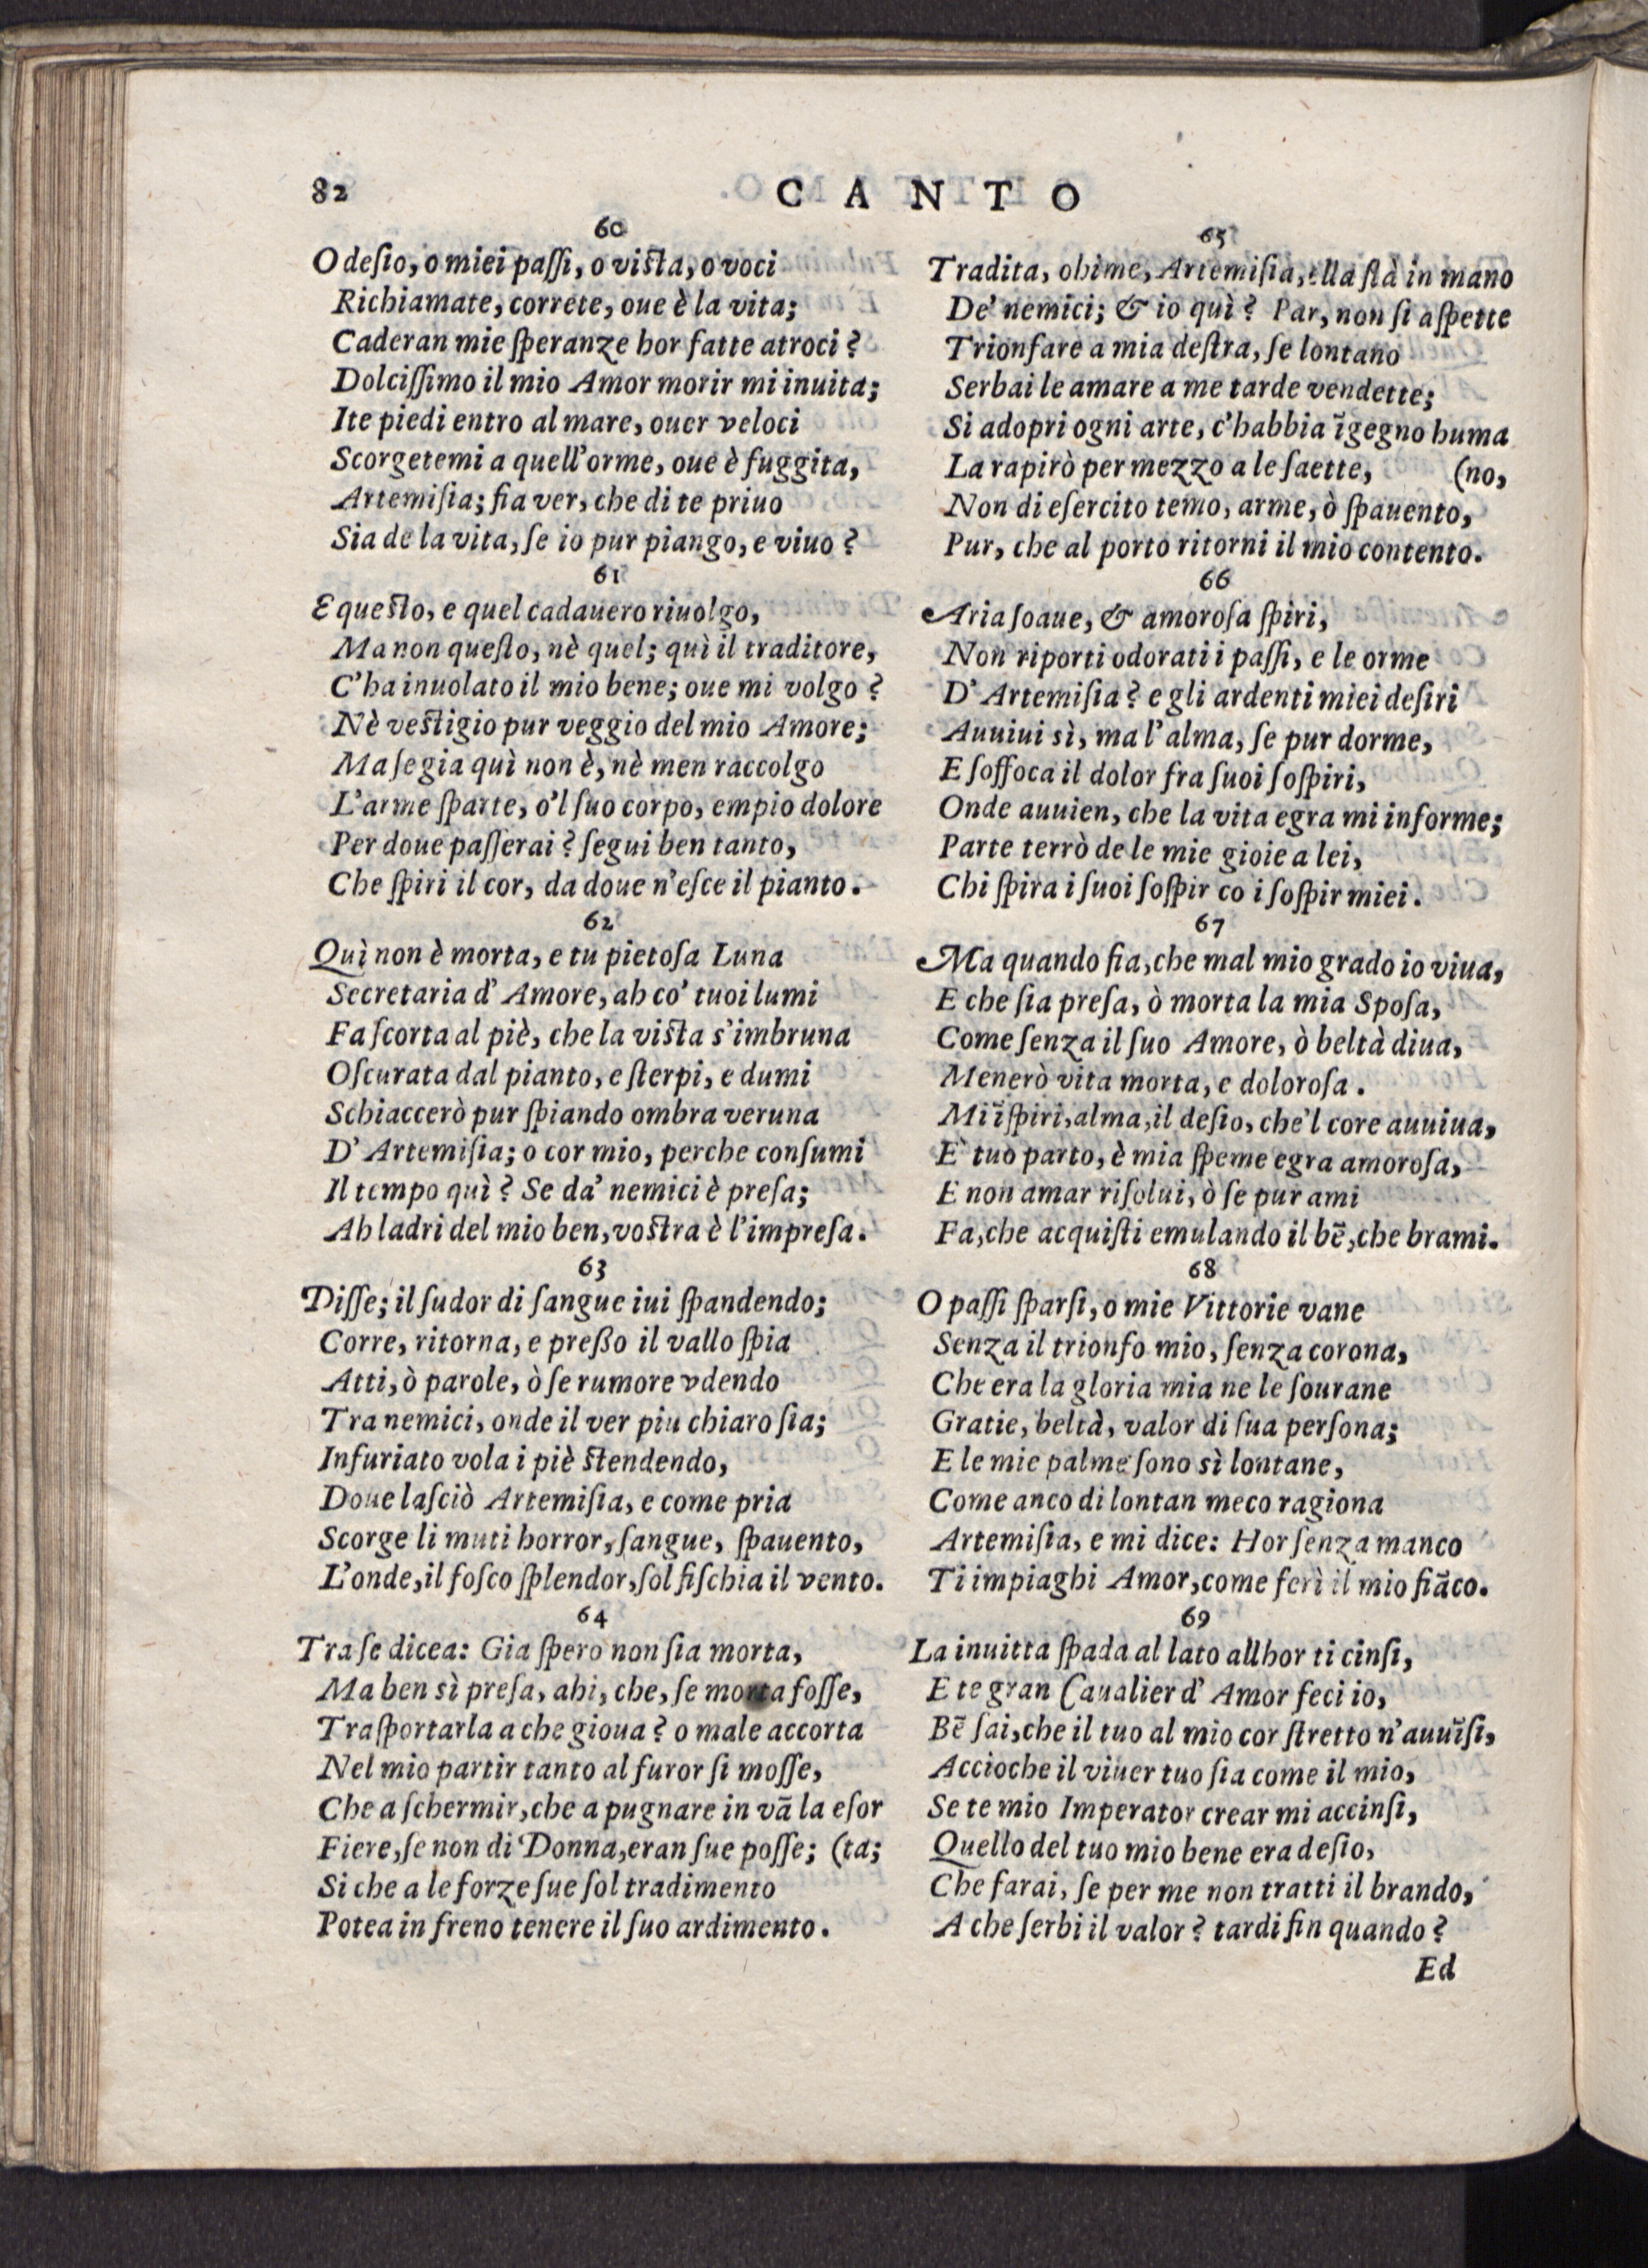 82
CANTO
60
O deſio, o miei paſſi, o viſta, o voci
Richiamate, correte, oue è la vita;
Caderan mie ſperanze hor fatte atroci?
Dolciſſimo il mio Amor morir mi inuita;
Ite piedi entro al mare, ouer veloci
Scorgetemi a quell'orme, oue è fuggita,
Artemiſia; fia ver, che di te priuo
Sia de la vita, ſe io pur piango, e viuo?
61
E queſto, e quel cadauero riuolgo,
Ma non queſto, nè quel; quì il traditore,
C'ha inuolato il mio bene; oue mi volgo?
Nè veſtigio pur veggio del mio Amore;
Ma ſe gia quì non è, nè men raccolgo
L'arme ſparte, o'l ſuo corpo, empio dolore
Per doue paſſerai? ſegui ben tanto,
Che ſpiri il cor, da doue n'eſce il pianto.
62
Quì non è morta, e tu pietoſa Luna
Secretaria d'Amore, ah co' tuoi lumi
Fa ſcorta al piè, che la viſta s'imbruna
Oſcurata dal pianto, e ſterpi, e dumi
Schiaccerò pur ſpiando ombra veruna
D'Artemiſia; o cor mio, perche conſumi
Il tempo quì? Se da' nemici è preſa;
Ah ladri del mio ben, voſtra è l'impreſa.
63
Diſſe; il ſudor di ſangue iui ſpandendo;
Corre, ritorna, e preßo il vallo ſpia
Atti, ò parole, ò ſe rumore vdendo
Tra nemici, onde il ver piu chiaro ſia;
Infuriato vola i piè ſtendendo,
Doue laſciò Artemiſia, e come pria
Scorge li muti horror, ſangue, ſpauento,
L'onde, il foſco ſplendor, ſol fiſchia il vento.
64
Tra ſe dicea: Gia ſpero non ſia morta,
Ma ben sì preſa, ahi, che, ſe morta foſſe,
Traſportarla a che gioua? o male accorta
Nel mio partir tanto al furor ſi moſſe,
Che a ſchermir, che a pugnare in vã la eſor
Fiere, ſe non di Donna, eran ſue poſſe; (ta;
Si che a le forze ſue ſol tradimento
Potea in freno tenere il ſuo ardimento.
65
Tradita, ohime, Artemiſia, ella ſtà in mano
De' nemici; & io quì? Par, non ſi aſpette
Trionfare a mia deſtra, ſe lontano
Serbai le amare a me tarde vendette;
Si adopri ogni arte, c'habbia ĩgegno huma
La rapirò per mezzo a le ſaette, (no,
Non di eſercito temo, arme, ò ſpauento,
Pur, che al porto ritorni il mio contento.
66
Aria ſoaue, & amoroſa ſpiri,
Non riporti odorati i paſſi, e le orme
D'Artemiſia? e gli ardenti miei deſiri
Auuiui sì, ma l'alma, ſe pur dorme,
E ſoffoca il dolor fra ſuoi ſoſpiri,
Onde auuien, che la vita egra mi informe;
Parte terrò de le mie gioie a lei,
Chi ſpira i ſuoi ſoſpir co i ſoſpir miei.
67
Ma quando fia, che mal mio grado io viua,
E che ſia preſa, ò morta la mia Spoſa,
Come ſenza il ſuo Amore, ò beltà diua,
Menerò vita morta, e doloroſa.
Mi ĩſpiri, alma, il deſio, che'l core auuiua,
È tuo parto, è mia ſpeme egra amoroſa,
E non amar riſolui, ò ſe pur ami
Fa, che acquiſti emulando il bẽ, che brami.
68
O paſſi ſparſi, o mie Vittorie vane
Senza il trionfo mio, ſenza corona,
Che era la gloria mia ne le ſourane
Gratie, beltà, valor di ſua perſona;
E le mie palme ſono sì lontane,
Come anco di lontan meco ragiona
Artemiſia, e mi dice: Hor ſenza manco
Ti impiaghi Amor, come ferì il mio fiãco.
69
La inuitta ſpada al lato allhor ti cinſi,
E te gran Caualier d'Amor feci io,
Bẽ ſai, che il tuo al mio cor ſtretto n'auuĩſi,
Accioche il viuer tuo ſia come il mio,
Se te mio Imperator crear mi accinſi,
Quello del tuo mio bene era deſio,
Che farai, ſe per me non tratti il brando,
A che ſerbi il valor? tardi fin quando?
Ed